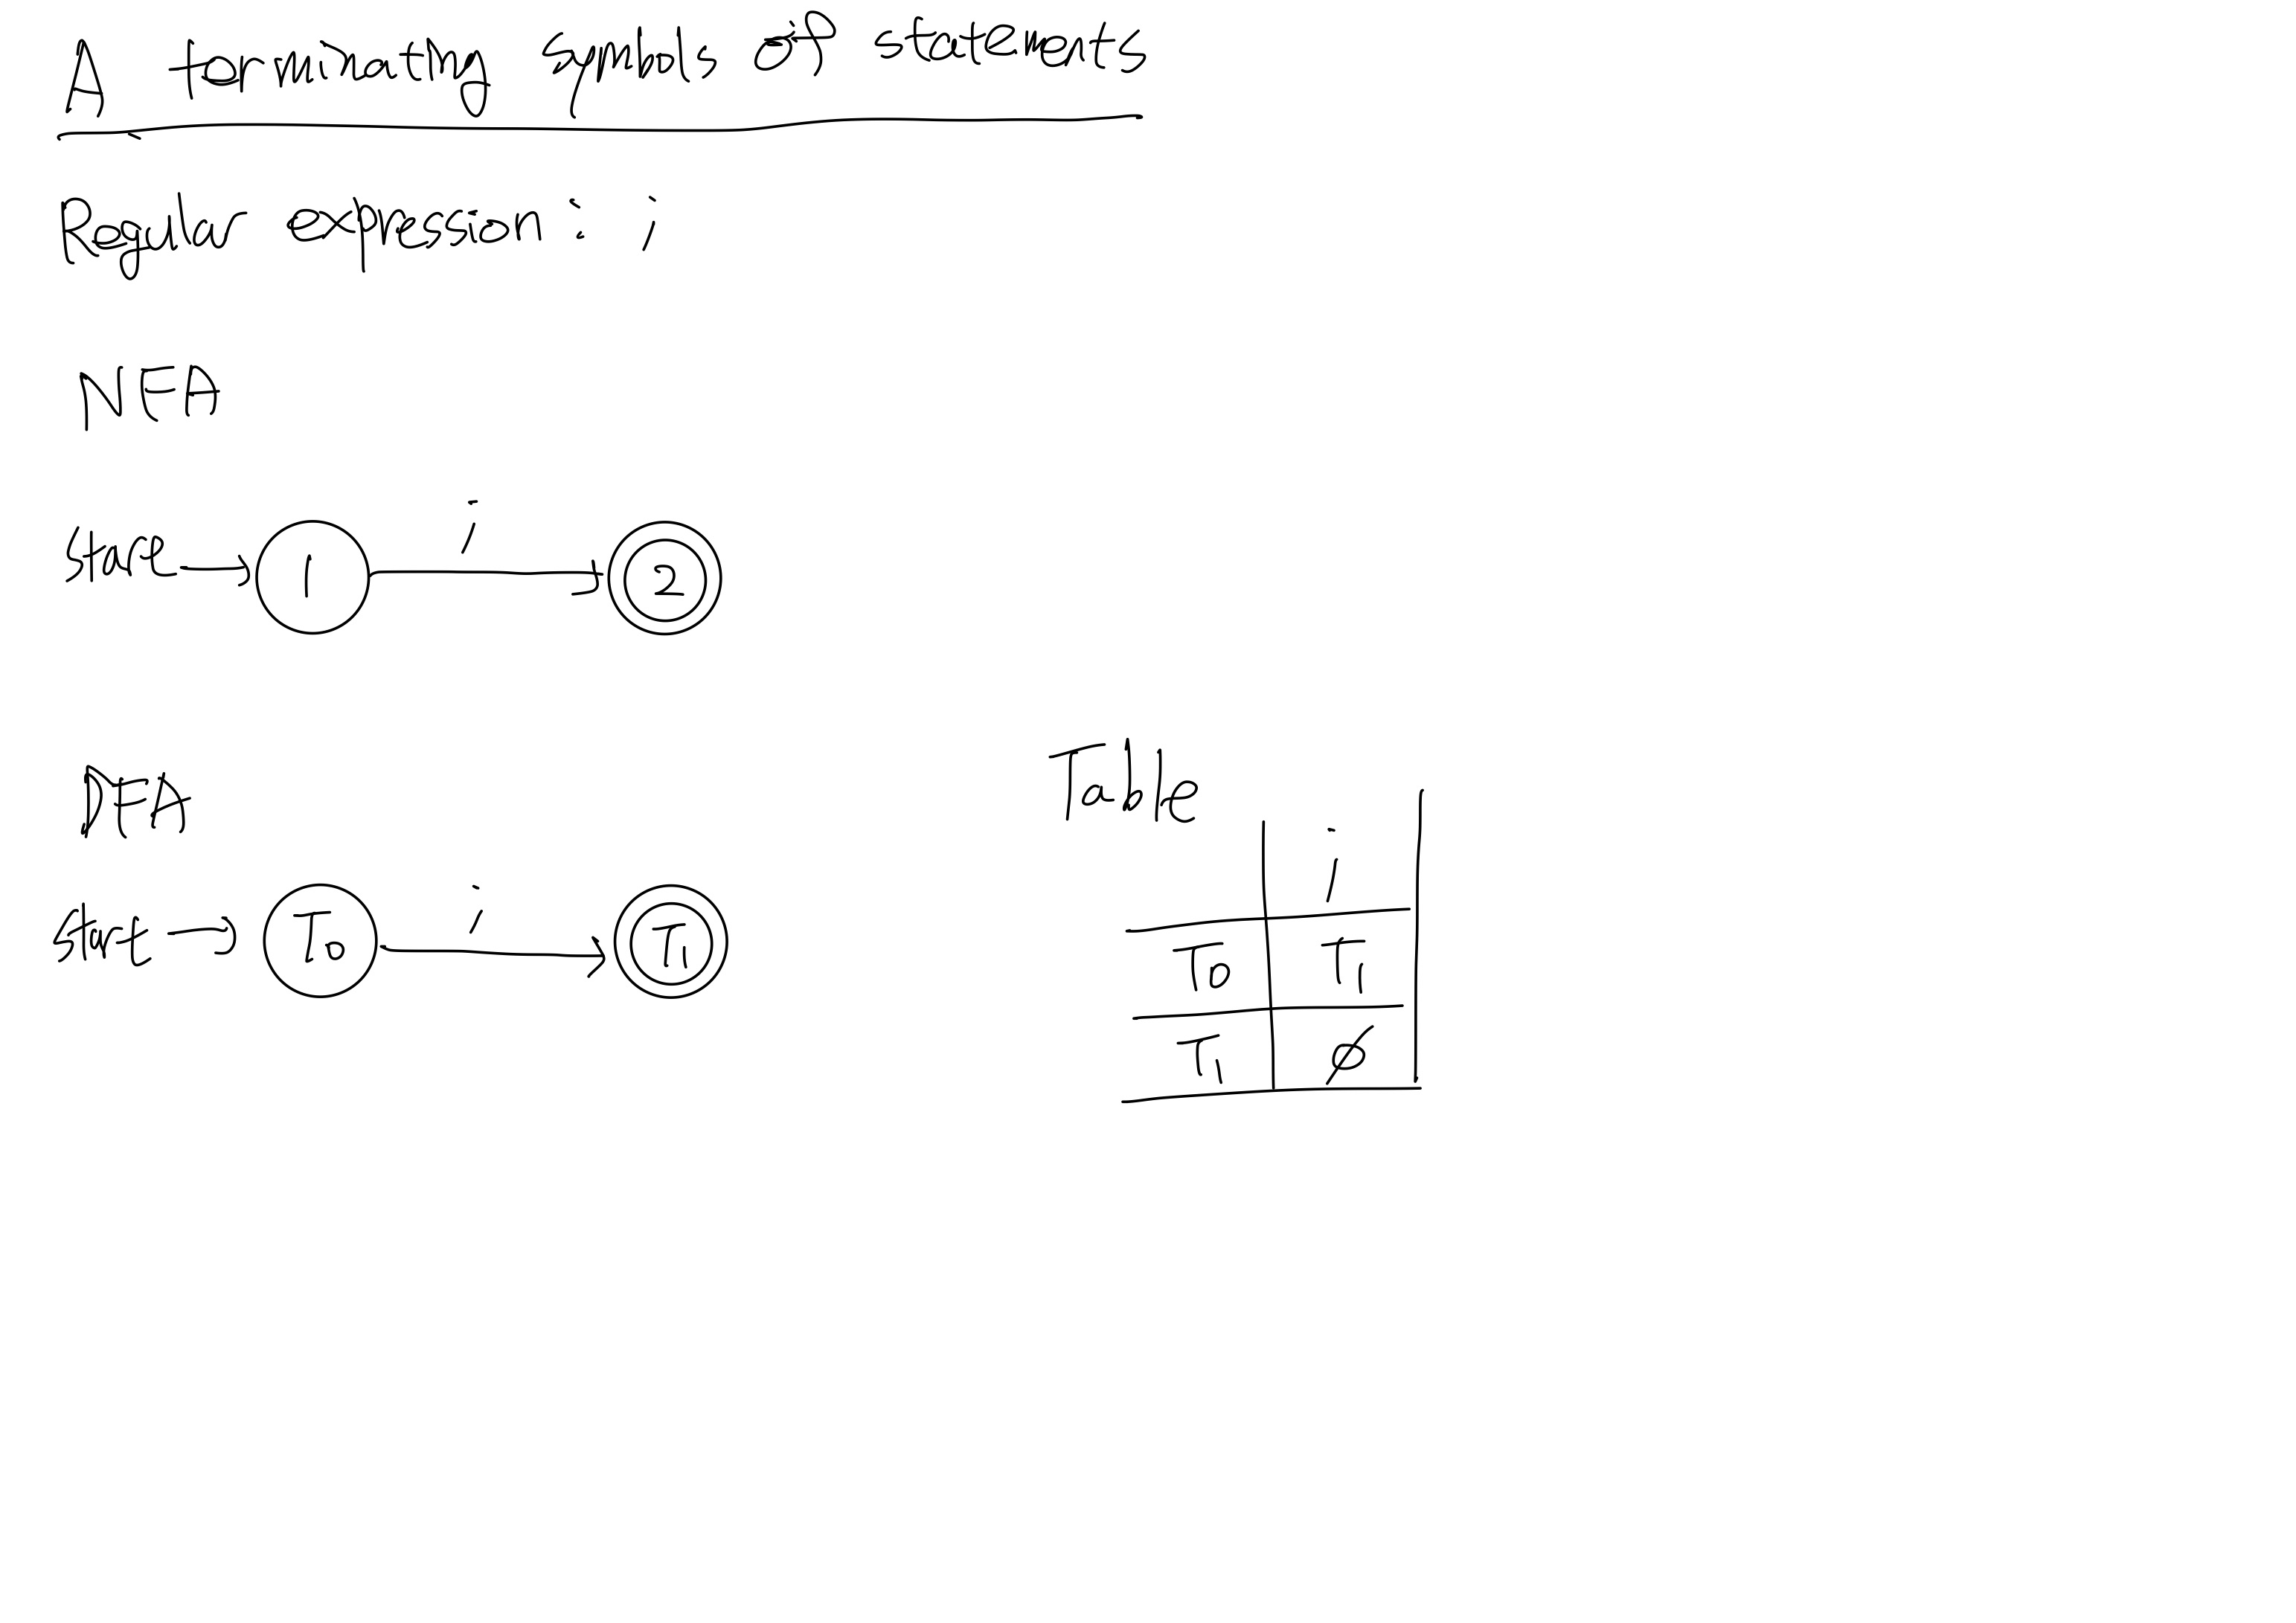 A terminating symbols of statements
Regular expression : ;
NFA
;
start → 1 2
DFA
Table
;
start → T0 T1
;
T0 T1
T1 ∅